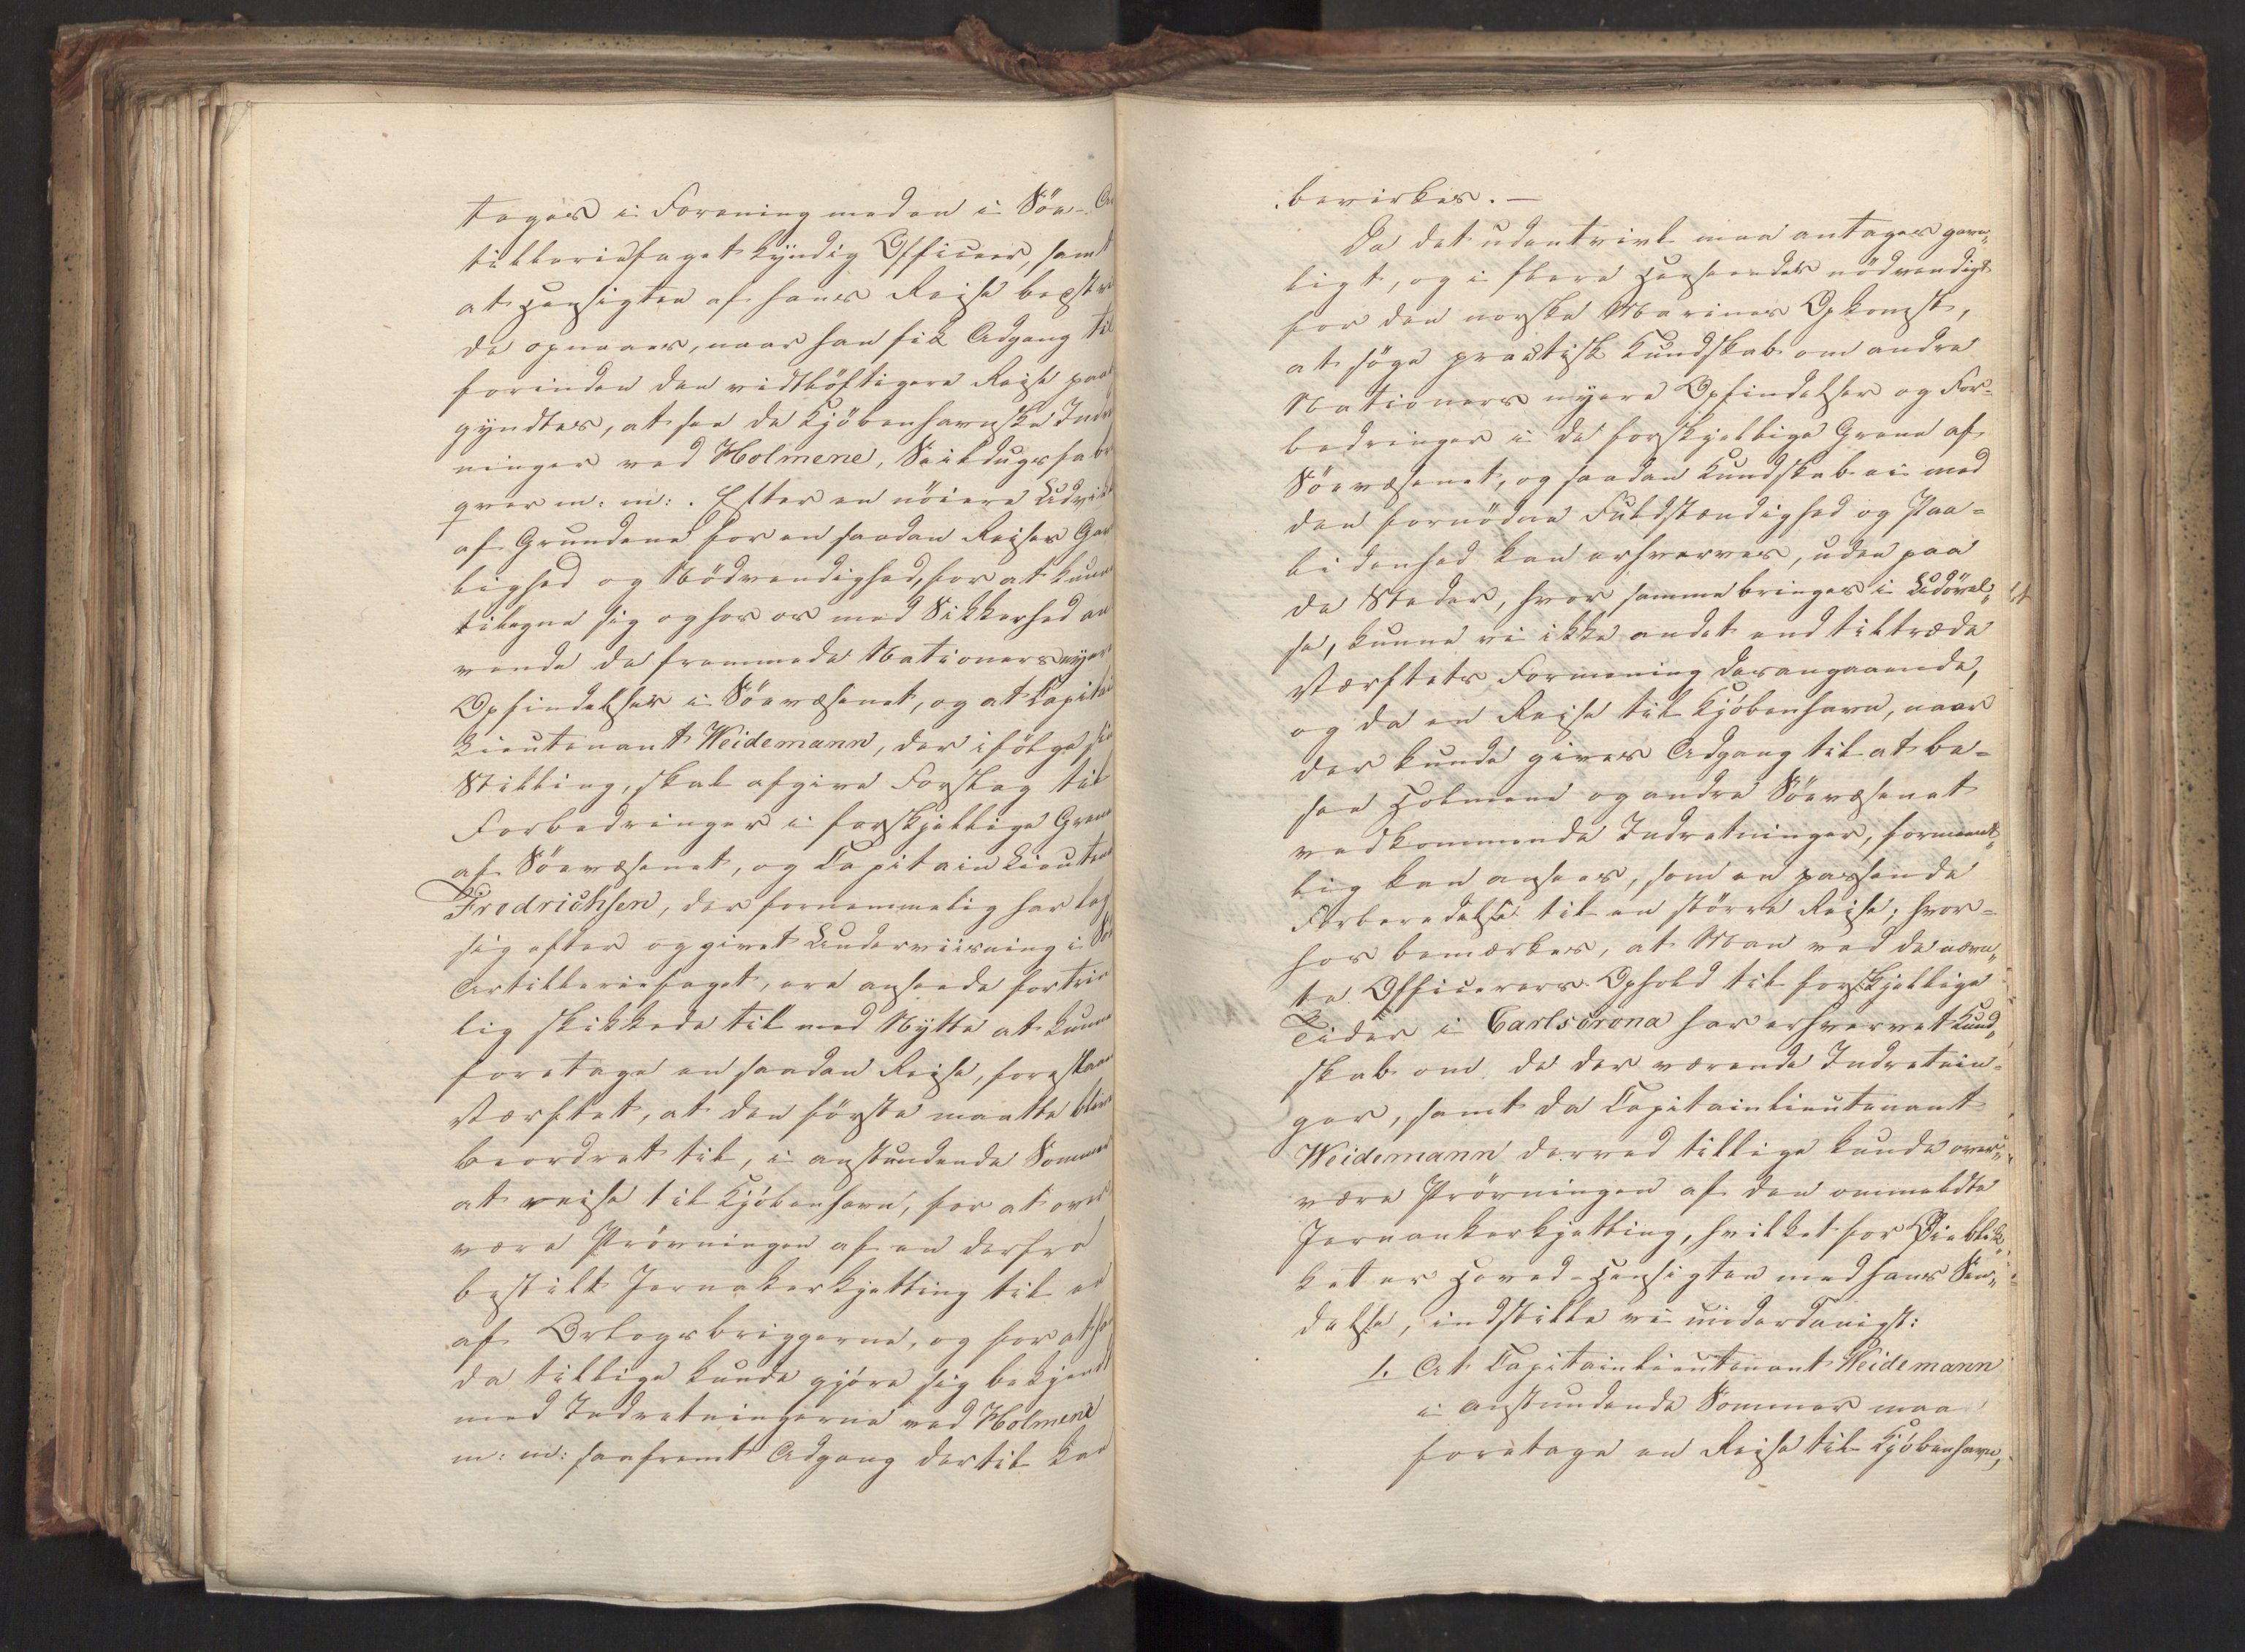 tages i Forening med en i Søe-
tilleriefaget kyndig Officeer, samt
at Hensigten af hans Reise bedst vil
de opnaaes, naar han fik Adgang til
forinden den vidtløftigere Reise paa
gyndtes, at see de Kjøbenhavnske Ind
ninger ved Holmene, Seildugsfabri
qver m: m: . Efter en nøiere Udvik
af Grundene for en saadan Reises Gav
lighed og Nødvendighed, for at kunne
tilegne sig og hos os med Sikkerhed an
vende de fremmede Nationers nyere
Opfindelser i Søevæsenet, og at Capitain
Lieutenant Weidemann, der ifølge sin
Stilling, skal afgive Forslag til
Forbedringer i forskjellige Grene
af Søevæsenet, og Capitainlieutenant
Fredrichsen, der fornemmelig har lag
sig efter og givet Underviisning i Søe
Artilleriefaget, ere ansaaede fortrin
lig skikkede til med Nytte at kunne
foretage en saadan Reise, foreslaaer
Værftet, at den første maatte blive
beordret til, i anstundende Sommer
at reise til Kjøbenhavn, for at over
være Prøvningen af en derfra
bestilt Jernakerkjetting til en
af Orlogsbriggerne, og for at han
da tillige kunde gjøre sig bekjendt
med Indretningerne ved Holmene
m: m: saafremt Adgang dertil kan
bevirkes. —
Da det udentvivl maa antages gavn„
ligt, og i flere Henseender nødvendigt
for den norske Marines Opkomst,
at søge practisk Kundskab om andre
Nationers nyere Opfindelser og For-
bedringer i de forskjellige Grene af
Søevæsenet, og saadan Kundskab ei med
den fornødne Fuldstændighed og Paa-
lidenhed kan erhverves, uden paa
de Steder, hvor samme bringes i Udøvel„
se, kunne vi ikke andet end tiltræde
Værftets Formening desangaaende,
og da en Reise til Kjøbenhavn, naar
der kunde gives Adgang til at be-
see Holmene og andre Søevæsenet
vedkommende Indretninger, formeent„
lig kan ansees, som en passende
Forberedelse til en større Reise; hvor-
hos bemærkes, at Man ved de nævn„
te Officerers Ophold til forskjellige
Tider i Carlscrona har erhvervet Kund„
skab om de der værende Indretnin-
ger, samt da Capitainlieutenant
Weidemann derved tillige kunde over„
være Prøvningen af den ommeldte
Jernankerkjetting, hvilket for Øieblik„
ket er Hoved-Hensigten med hans Sen„
delse, indstille vi underdanigst:
1. At Capitainlieutenant Weidemann
i anstundende Sommer maa
foretage en Reise til Kjøbenhavn,